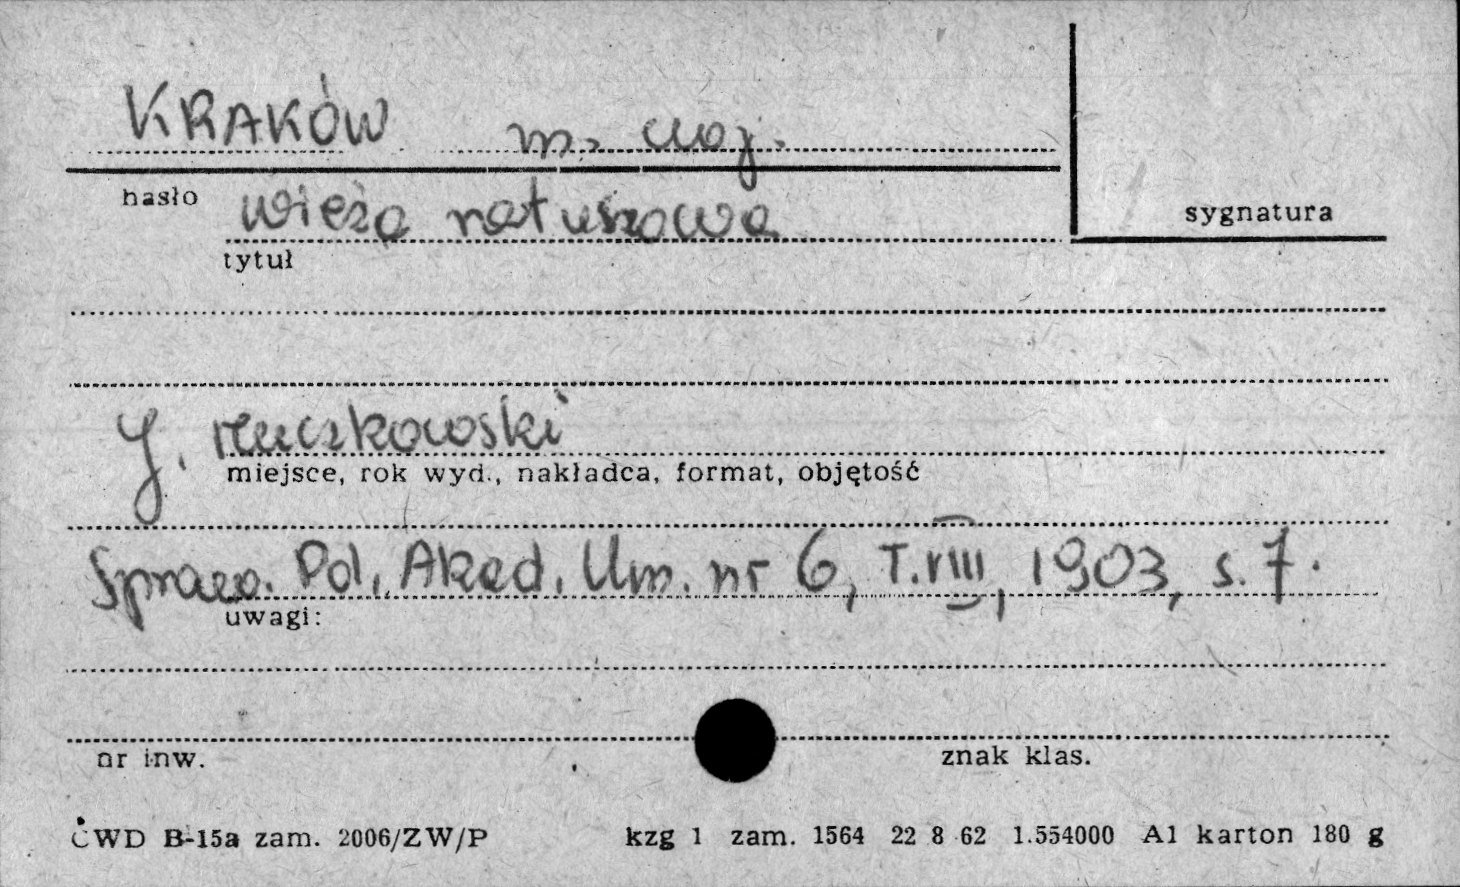 KRAKÓW m. woj.
hasło wieża ratuszowa
sygnatura
tytuł
J. Muczkowski
miejsce, rok wyd., nakładca, format, objętość
Spraw. Pol. Akad. Um. nr 6, T. VIII, 1903, s. 7.
uwagi:
nr inw. znak klas.
CWD B-15a zam. 2006/ZW/P kzg 1 zam. 1564 22 8 62 1.554000 A1 karton 180 g